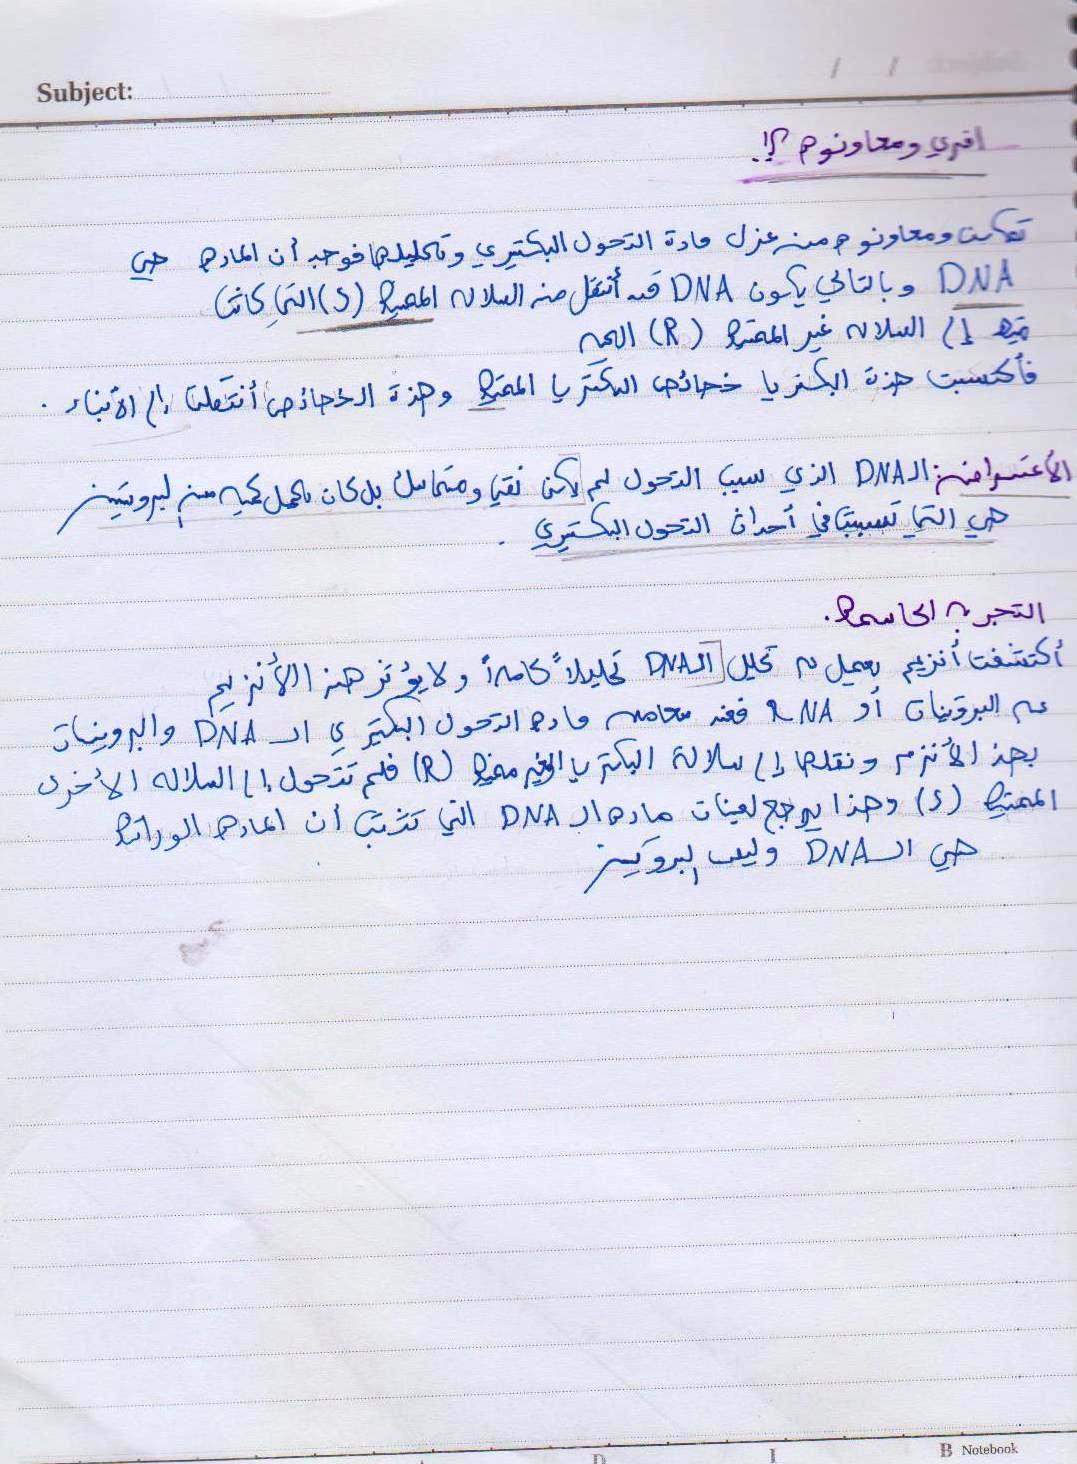 Subject:
افري ومعاونوه ؟!.
ومعاونوه من عزل مادة التحول البكتيري وتحليلها فوجد أن الماده هي
DNA وبالتالي يكون DNA قد أنتقل من السلاله المميته (S) التي كانت
إلى السلاله غير المميته (R) الحيه
فأكتسبت هذة البكتريا خصائص البكتريا المميته وهذة الخصائص أنتقلت إلى الأبناء .
الأعتراض: الـ DNA الذي سبب التحول لم يكن نقي ومتماسك بل كان يحمل كميه من البروتين
هي التي تسببت في أحداث التحول البكتيري .
التجربه الحاسمه.
أكتشفت أنزيم يعمل له تحليل الـ DNA تحليلاً كاملاً ولا يؤثر هذا الأنزيم
على البروتينات أو RNA فعند معامله ماده التحول البكتيري الـ DNA والبروتينات
بهذ الأنزم ونقلها إلى سلالة البكتريا الغير مميته (R) فلم تتحول إلى السلاله الأخرى
المميته (S) وهذا يرجع لغياب ماده الـ DNA التي تثبت أن الماده الوراثيه
هي الـ DNA وليس البروتين
B Notebook